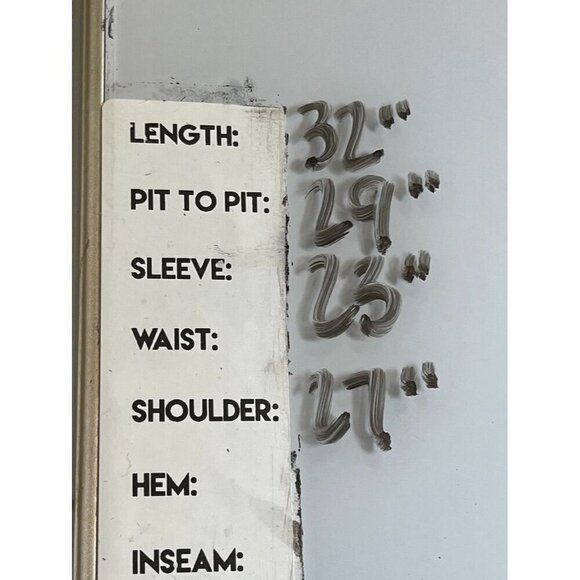 LENGTH: 32"
PIT TO PIT: 29"
SLEEVE: 23"
WAIST:
SHOULDER: 27"
HEM:
INSEAM: